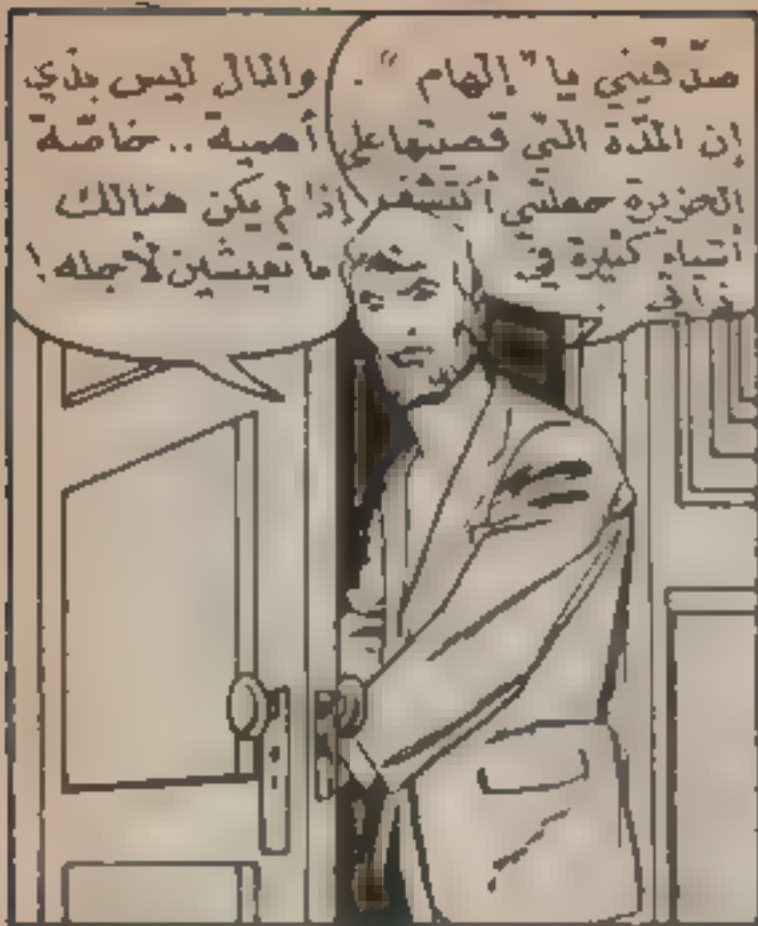 صدّقيني يا "إلهام".
إن المدّة التي قضيتها على
الجزيرة جعلتني أكتشف
أشياء كثيرة في
ذاتي
والمال ليس بذي
أهمية .. خاصّة
إذا لم يكن هنالك
ما تعيشين لأجله !